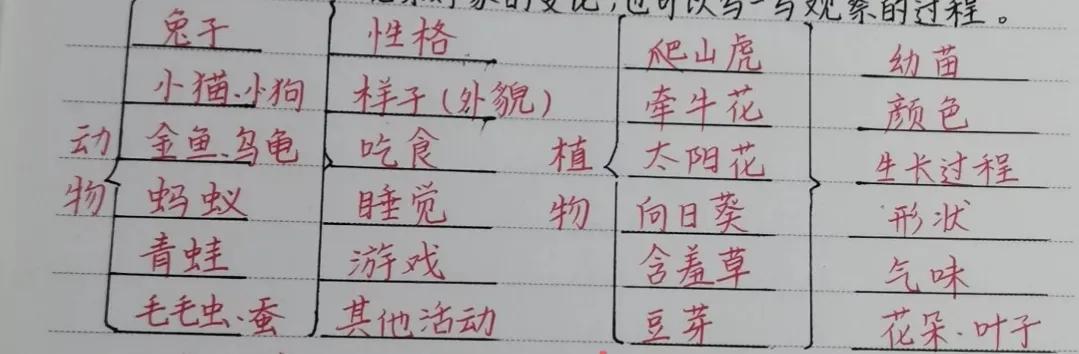 的变化,也可以写一写观察的过程。
兔子 性格 爬山虎 幼苗
小猫、小狗 样子(外貌) 牵牛花 颜色
动 金鱼、乌龟 吃食 植 太阳花 生长过程
物 蚂蚁 睡觉 物 向日葵 形状
青蛙 游戏 含羞草 气味
毛毛虫、蚕 其他活动 豆芽 花朵、叶子